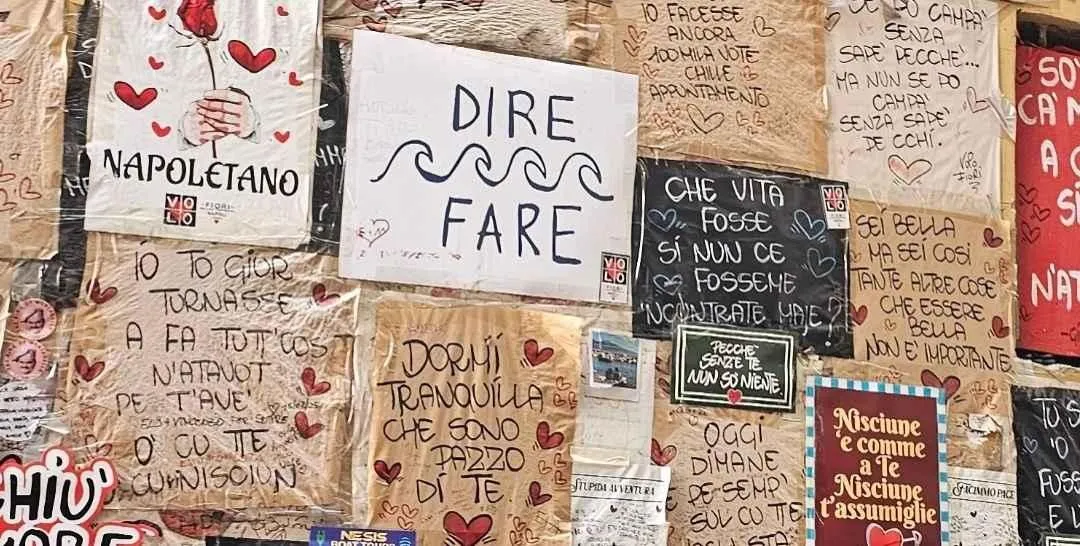 NAPOLETANO
VOLO
FIORI
NAPOLI
DIRE
FARE
VOLO
FIORI
IO FACESSE
ANCORA
100MILA VOTE
CHILL'
APPUNTAMENTO
SE PO CAMPA'
SENZA
SAPE' PECCHE'...
MA NUN SE PO
CAMPA'
SENZA SAPE'
PE CCHÍ.
VOLO
FIORI
SO'
CA' N
A C
SÍ
N'AT
CHE VITA
FOSSE
SÍ NUN CE
FOSSEME
'NCONTRATE MAJE?
VOLO
SEI BELLA
MA SEI COSÍ
TANTE ALTRE COSE
CHE ESSERE
BELLA
NON E' IMPORTANTE
IO TO GIUR
TURNASSE
A FA TUTT'COS
N'ATAVOT
PE T'AVE'
O' CU TTE
CU NISCIUN
DORMÍ
TRANQUILLA
CHE SONO
PAZZO
DI TE
PECCHE'
SENZE TE
NUN SO' NIENTE.
OGGI
DIMANE
PE SEMP'
SUL CU TE
STUPIDA AVVENTURA
Nisciune
'e comme
a Te
Nisciune
t'assumiglie
FACIMMO PACE
TU S
'O
FUSS
E L
CHIU'
NESIS
BOAT TOURS